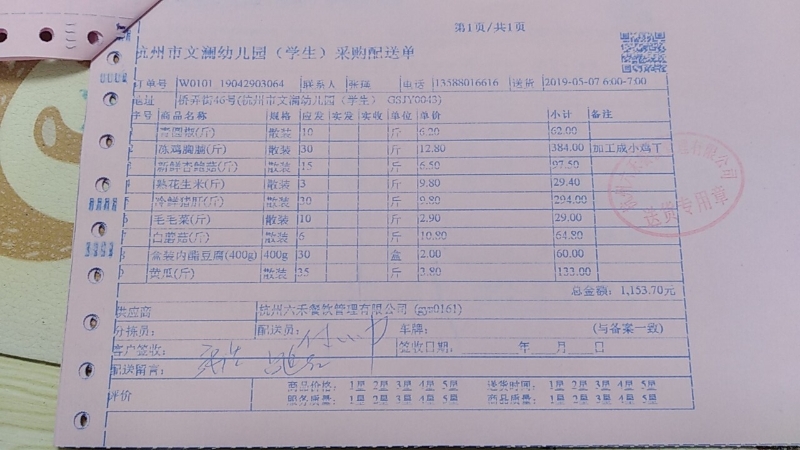 第1页/共1页
杭州市文澜幼儿园（学生）采购配送单
订单号 W0101 19042903064 联系人 张瑛 电话 13588016616 送货 2019-05-07 6:00-7:00
地址 桥弄街46号(杭州市文澜幼儿园（学生） GSJY0043)
序号 商品名称 规格 应发 实发 实收 单位 单价 小计 备注
1 青圆椒(斤) 散装 10 斤 6.20 62.00
2 冻鸡胸脯(斤) 散装 30 斤 12.80 384.00 加工成小鸡丁
3 新鲜杏鲍菇(斤) 散装 15 斤 6.50 97.50
4 熟花生米(斤) 散装 3 斤 9.80 29.40
5 冷鲜猪肝(斤) 散装 30 斤 9.80 294.00
6 毛毛菜(斤) 散装 10 斤 2.90 29.00
7 白蘑菇(斤) 散装 6 斤 10.80 64.80
8 盒装内酯豆腐(400g) 400g 30 盒 2.00 60.00
9 黄瓜(斤) 散装 35 斤 3.80 133.00
总金额： 1,153.70元
供应商 杭州六禾餐饮管理有限公司 (gys0161)
分拣员： 配送员： 车牌： (与备案一致)
客户签收： 签收日期： 年 月 日
配送留言：
评价 商品价格： 1星 2星 3星 4星 5星 送货时间： 1星 2星 3星 4星 5星
服务质量： 1星 2星 3星 4星 5星 商品质量： 1星 2星 3星 4星 5星
送货专用章